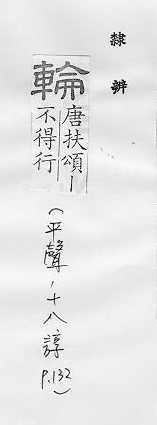 隸辨
輪
唐扶頌｜
不得行
(平聲-十八諄
p.132)